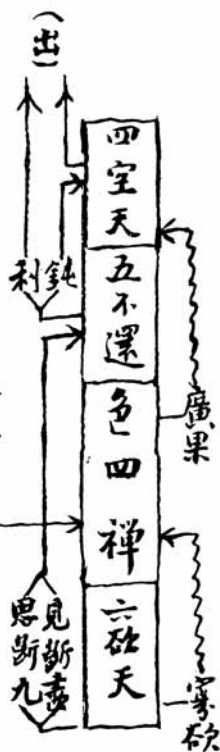 (出)
四空天
五不還
色四禅
六欲天
利
鈍
廣果
見断盡
思断九